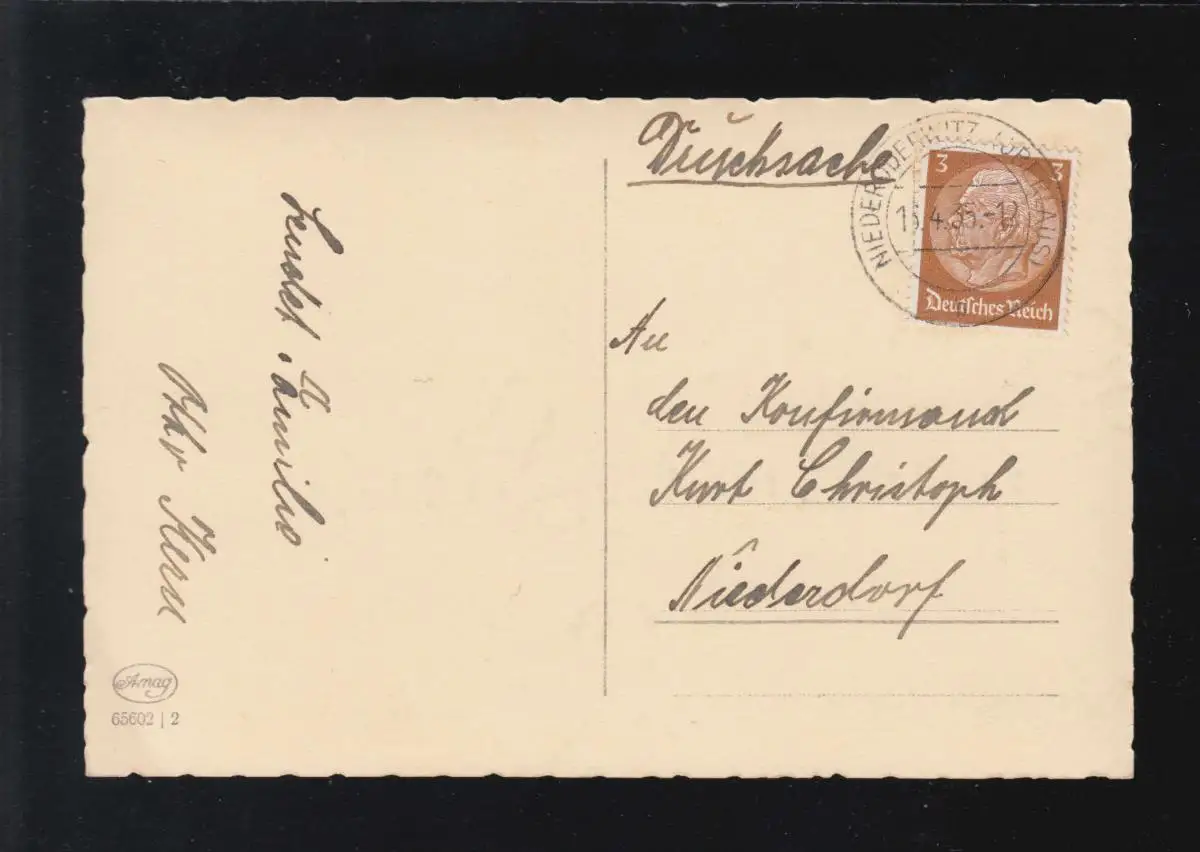 Drucksache
NIEDERODERWITZ (OBERLAUS)
4.35.-12
3 3
Deutsches Reich
An
den Konfirmand
Kurt Christoph
Niederdorf
Sendet Familie
Kern
Amag
65602 | 2